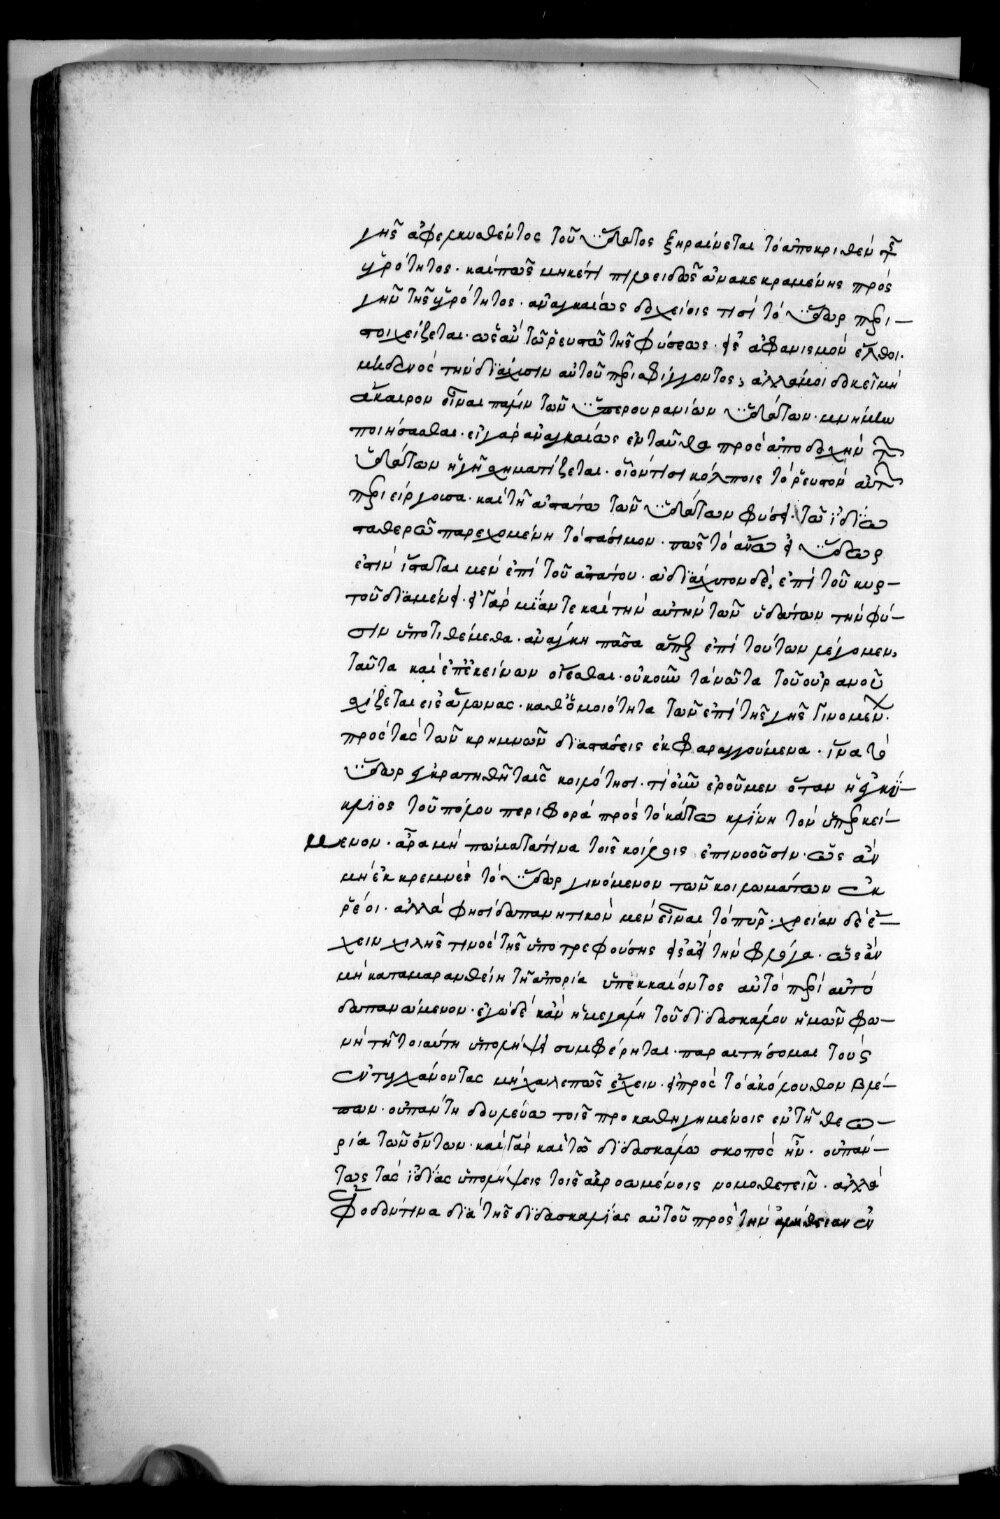 γῆς ἀφελκυσθέντος τοῦ ὕδατος ξηραίνεται τὸ ἀποκριθὲν τῆς
ὑγρότητος· καὶ πῶς μηκέτι πηλώδης ἀνακεκραμένης πρὸς
γῆν τῆς ὑγρότητος· ἀναγκαίως δοχείοις τισὶ τὸ ὕδωρ περι-
στοιχίζεται· ὡς ἂν τῶ ῥευστῶ τῆς φύσεως· εἰς ἀφανισμὸν ἔλθοι·
μηδενὸς τὴν διάχυσιν αὐτοῦ περισφίγγοντος, ἀλλά μοι δοκεῖ μὴ
ἄκαιρον εἶναι πάλιν τῶν ὑπερουρανίων ὑδάτων μνήμην
ποιήσασθαι· εἰ γὰρ ἀναγκαίως ἐνταῦθα πρὸς ἀποδοχὴν τῶν
ὑδάτων ἡ γῆ σχηματίζεται· οἷόν τισι κόλποις τὸ ῥευστὸν αὐτῶν
περιείργουσα· καὶ τῆ ἀστάτω τῶν ὑδάτων φύσει· τῶ ἰδίω
σταθερῶ παρεχομένη τὸ στάσιμον· πῶς τὸ ἄνω εἰ ὕδωρ
ἐστὶν ἵσταται μὲν ἐπὶ τοῦ ἀστάτου· ἀδιάχυτον δὲ, ἐπὶ τοῦ κυρ-
τοῦ διαμένει· εἰ γὰρ μίαν τε καὶ τὴν αὐτὴν τῶν ὑδάτων τὴν φύ-
σιν ὑποτιθέμεθα· ἀνάγκη πᾶσα ἅπερ ἐπὶ τούτων λέγομεν,
ταῦτα καὶ ἐπ' ἐκείνων οἴεσθαι· οὐκοῦν τὰ νῶτα τοῦ οὐρανοῦ
σχίζεται εἰς αὐλῶνας· καθ' ὁμοιότητα τῶν ἐπὶ τῆς γῆς γινομένων·
πρὸς τὰς τῶν κρημνῶν διαστάσεις ἐκφαραγγούμενα· ἵνα τὸ
ὕδωρ ἐγκρατηθῆ ταῖς κοιλότησι· τί οὖν ἐροῦμεν ὅταν ἡ ἐγκύ-
κλιος τοῦ πόλου περιφορὰ πρὸς τὸ κάτω κλίνη τὸν ὑπερκεί-
μενον· ἆρα μὴ πώματά τινα τοῖς κοίλοις ἐπινοοῦσιν· ὡς ἂν
μὴ ἐκκρεμνὲς τὸ ὕδωρ γινόμενον τῶν κοιλωμάτων ἐκ
ῥέοι· ἀλλά φησι δαπανητικὸν μὲν εἶναι τὸ πῦρ· χρείαν δὲ ἔ-
χειν ὕλης τινὸς τῆς ὑποτρεφούσης εἰς ἀεὶ τὴν φλόγα· ὡς ἂν
μὴ καταμαρανθείη τῆ ἀπορία ὑπεκκαίοντος αὐτὸ περὶ αὐτὸ
δαπανώμενον· ἐγὼ δὲ κἂν ἡ μεγάλη τοῦ διδασκάλου ἡμῶν φω-
νὴ τῆ τοιαύτη ὑπολήψει συμφέρηται· παραιτήσομαι τοὺς
ἐντυχάνοντας μὴ χαλεπῶς ἔχειν· εἰ πρὸς τὸ ἀκόλουθον βλέ-
πων· οὐ πάντη δουλεύω τοῖς προκαθηγημένοις ἐν τῆ θεω-
ρία τῶν ὄντων· καὶ γὰρ καὶ τῶ διδασκάλω σκοπὸς ἦν· οὐ πάν-
τως τὰς ἰδίας ὑπολήψεις τοῖς ἀκροωμένοις νομοθετεῖν· ἀλλὰ
ἔφοδόν τινα διὰ τῆς διδασκαλίας αὐτοῦ πρὸς τὴν ἀλήθειαν ἐν